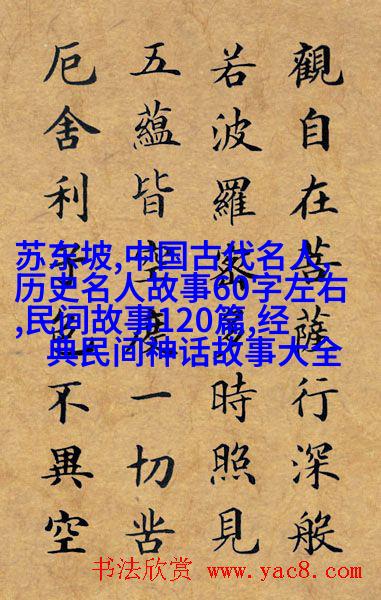 觀自在菩薩行深般
若波羅蜜多時照見
五蘊皆空度一切苦
厄舍利子色不異空
苏东坡,中国古代名人,
历史名人故事60字左右
,民间故事120篇,经
典民间神话故事大全
书法欣赏 www.yac8.com